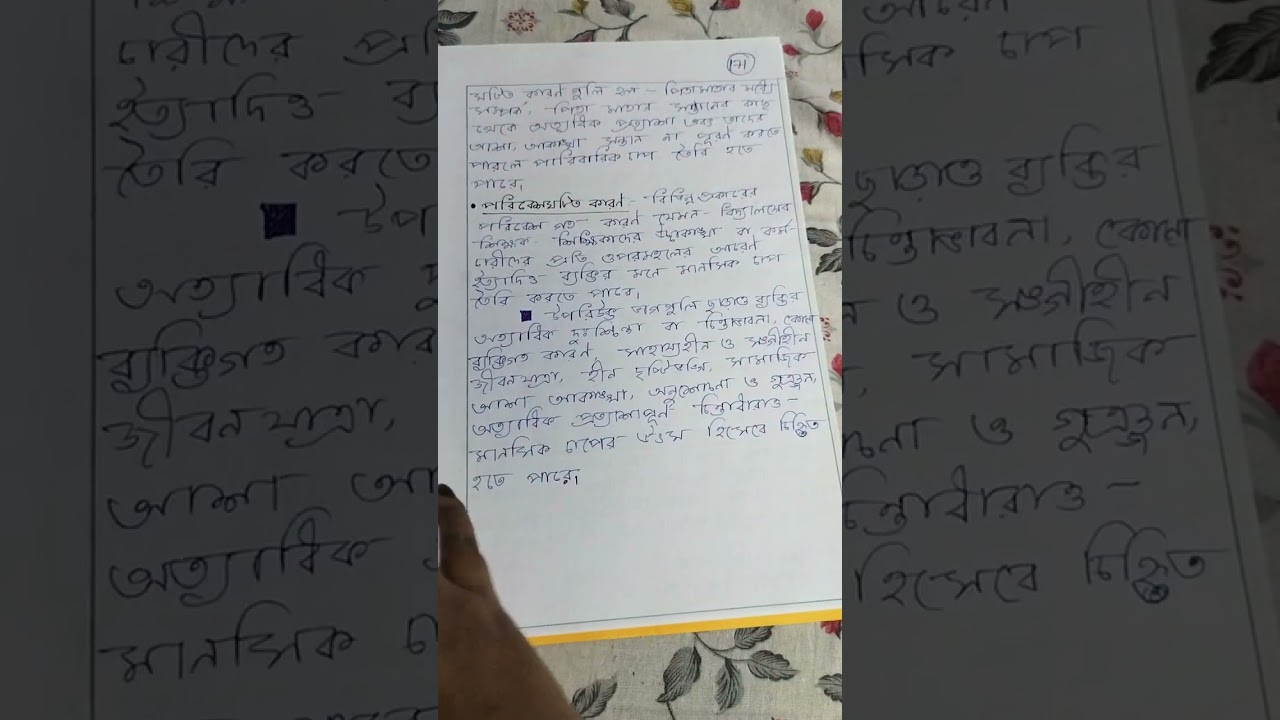 ১৭
ঘটিত কারণ গুলি হল - পিতামাতার মধ্যে
সম্পর্ক, পিতা মাতার সন্তানের কাছ
থেকে অত্যধিক প্রত্যাশা এবং তাদের
আশা, আকাঙ্খা সন্তান না পূরণ করতে
পারলে পারিবারিক চাপ তৈরি হতে
পারে।
• পরিবেশঘটিত কারণ - বিভিন্ন প্রকারের
পরিবেশ গত কারণ যেমন - বিদ্যালয়ের
শিক্ষক - শিক্ষিকাদের বা কর্ম-
চারীদের প্রতি ওপরমহলের আচরণ
ইত্যাদিও ব্যক্তির মনে মানসিক চাপ
তৈরি করতে পারে।
■ উপরিউক্ত ভাগগুলি ছাড়াও ব্যক্তির
অত্যাধিক দুঃশ্চিন্তা বা চিন্তাভাবনা, কোনো
ব্যক্তিগত কারণ, সাহায্যহীন ও সঙ্গীহীন
জীবন যাত্রা, হীন দৃষ্টিভঙ্গি, সামাজিক
আশা আকাঙ্খা, অনুশোচনা ও
অত্যাধিক প্রত্যাশাপূর্ণ চিন্তাধারাও -
মানসিক চাপের উৎস হিসেবে চিহ্নিত
হতে পারে।